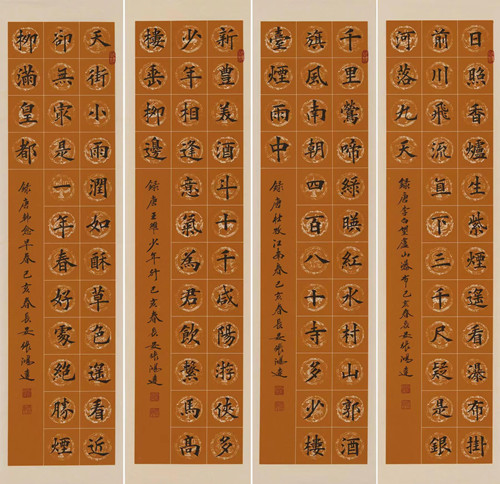 日照香爐生紫煙遙看瀑布掛
前川飛流直下三千尺疑是銀
河落九天
錄唐李白望廬山瀑布己亥春長安張鴻
千里鶯啼綠暎紅水村山郭酒
旗風南朝四百八十寺多少樓
臺煙雨中
錄唐杜牧江南春己亥春長安張鴻
新豐美酒斗十千咸陽游俠多
少年相逢意氣為君飲繫馬高
樓垂柳邊
錄唐王維少年行己亥春長安張鴻
天街小雨潤如酥草色遙看近
卻無最是一年春好處絕勝煙
柳滿皇都
錄唐韓愈早春己亥春長安張鴻